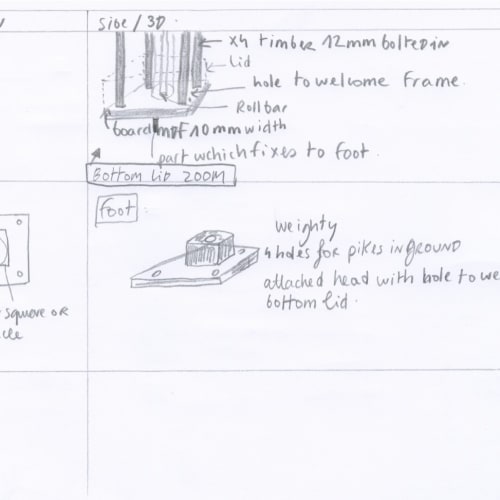 side / 3D.
x4 timber 12mm bolted in
Lid
hole to welcome frame.
Roll bar
board MDF 10mm width
part wchich fixes to foot.
Bottom Lid ZOOM
foot
weighty
4 holes for pikes in GROUND
attached head with hole to we
bottom lid.
square or